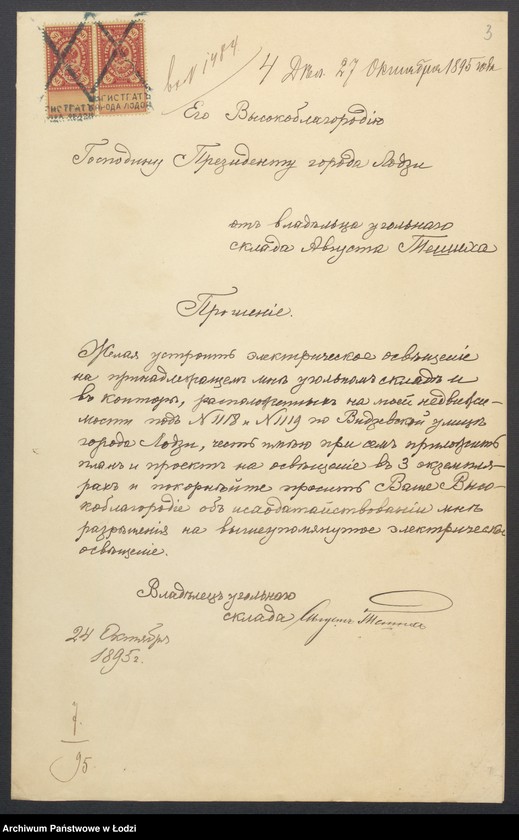 3
вх N 1484
4 Дѣл. 27 Октября 1895 года
МАГИСТРАТЪ
ГОРОДА ЛОДЗИ
Его Высокоблагородію
Господину Президенту города Лодзи
отъ владѣльца угольнаго
склада Августа Тешиха
Прошеніе.
Желая устроить электрическое освѣщеніе
на принадлежащемъ мнѣ угольномъ складѣ и
въ конторѣ, расположенныхъ на моей недвижи-
мости подъ N 1118 и N 1119 по Видзевской улицѣ
города Лодзи, честь имѣю при семъ приложить
планъ и проектъ на освѣщеніе въ 3 экземпля-
рахъ и покорнѣйше просить Ваше Высо-
коблагородіе объ исходатайствованіи мнѣ
разрѣшенія на вышеупомянутое электрическое
освѣщеніе.
Владѣлецъ угольнаго
склада Августъ Тешихъ
24 Октября
1895 г.
95
Archiwum Państwowe w Łodzi